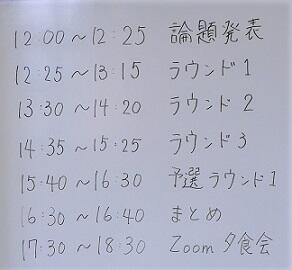 12:00～12:25 論題発表
12:25～13:15 ラウンド1
13:30～14:20 ラウンド2
14:35～15:25 ラウンド3
15:40～16:30 予選ラウンド1
16:30～16:40 まとめ
17:30～18:30 Zoom夕食会